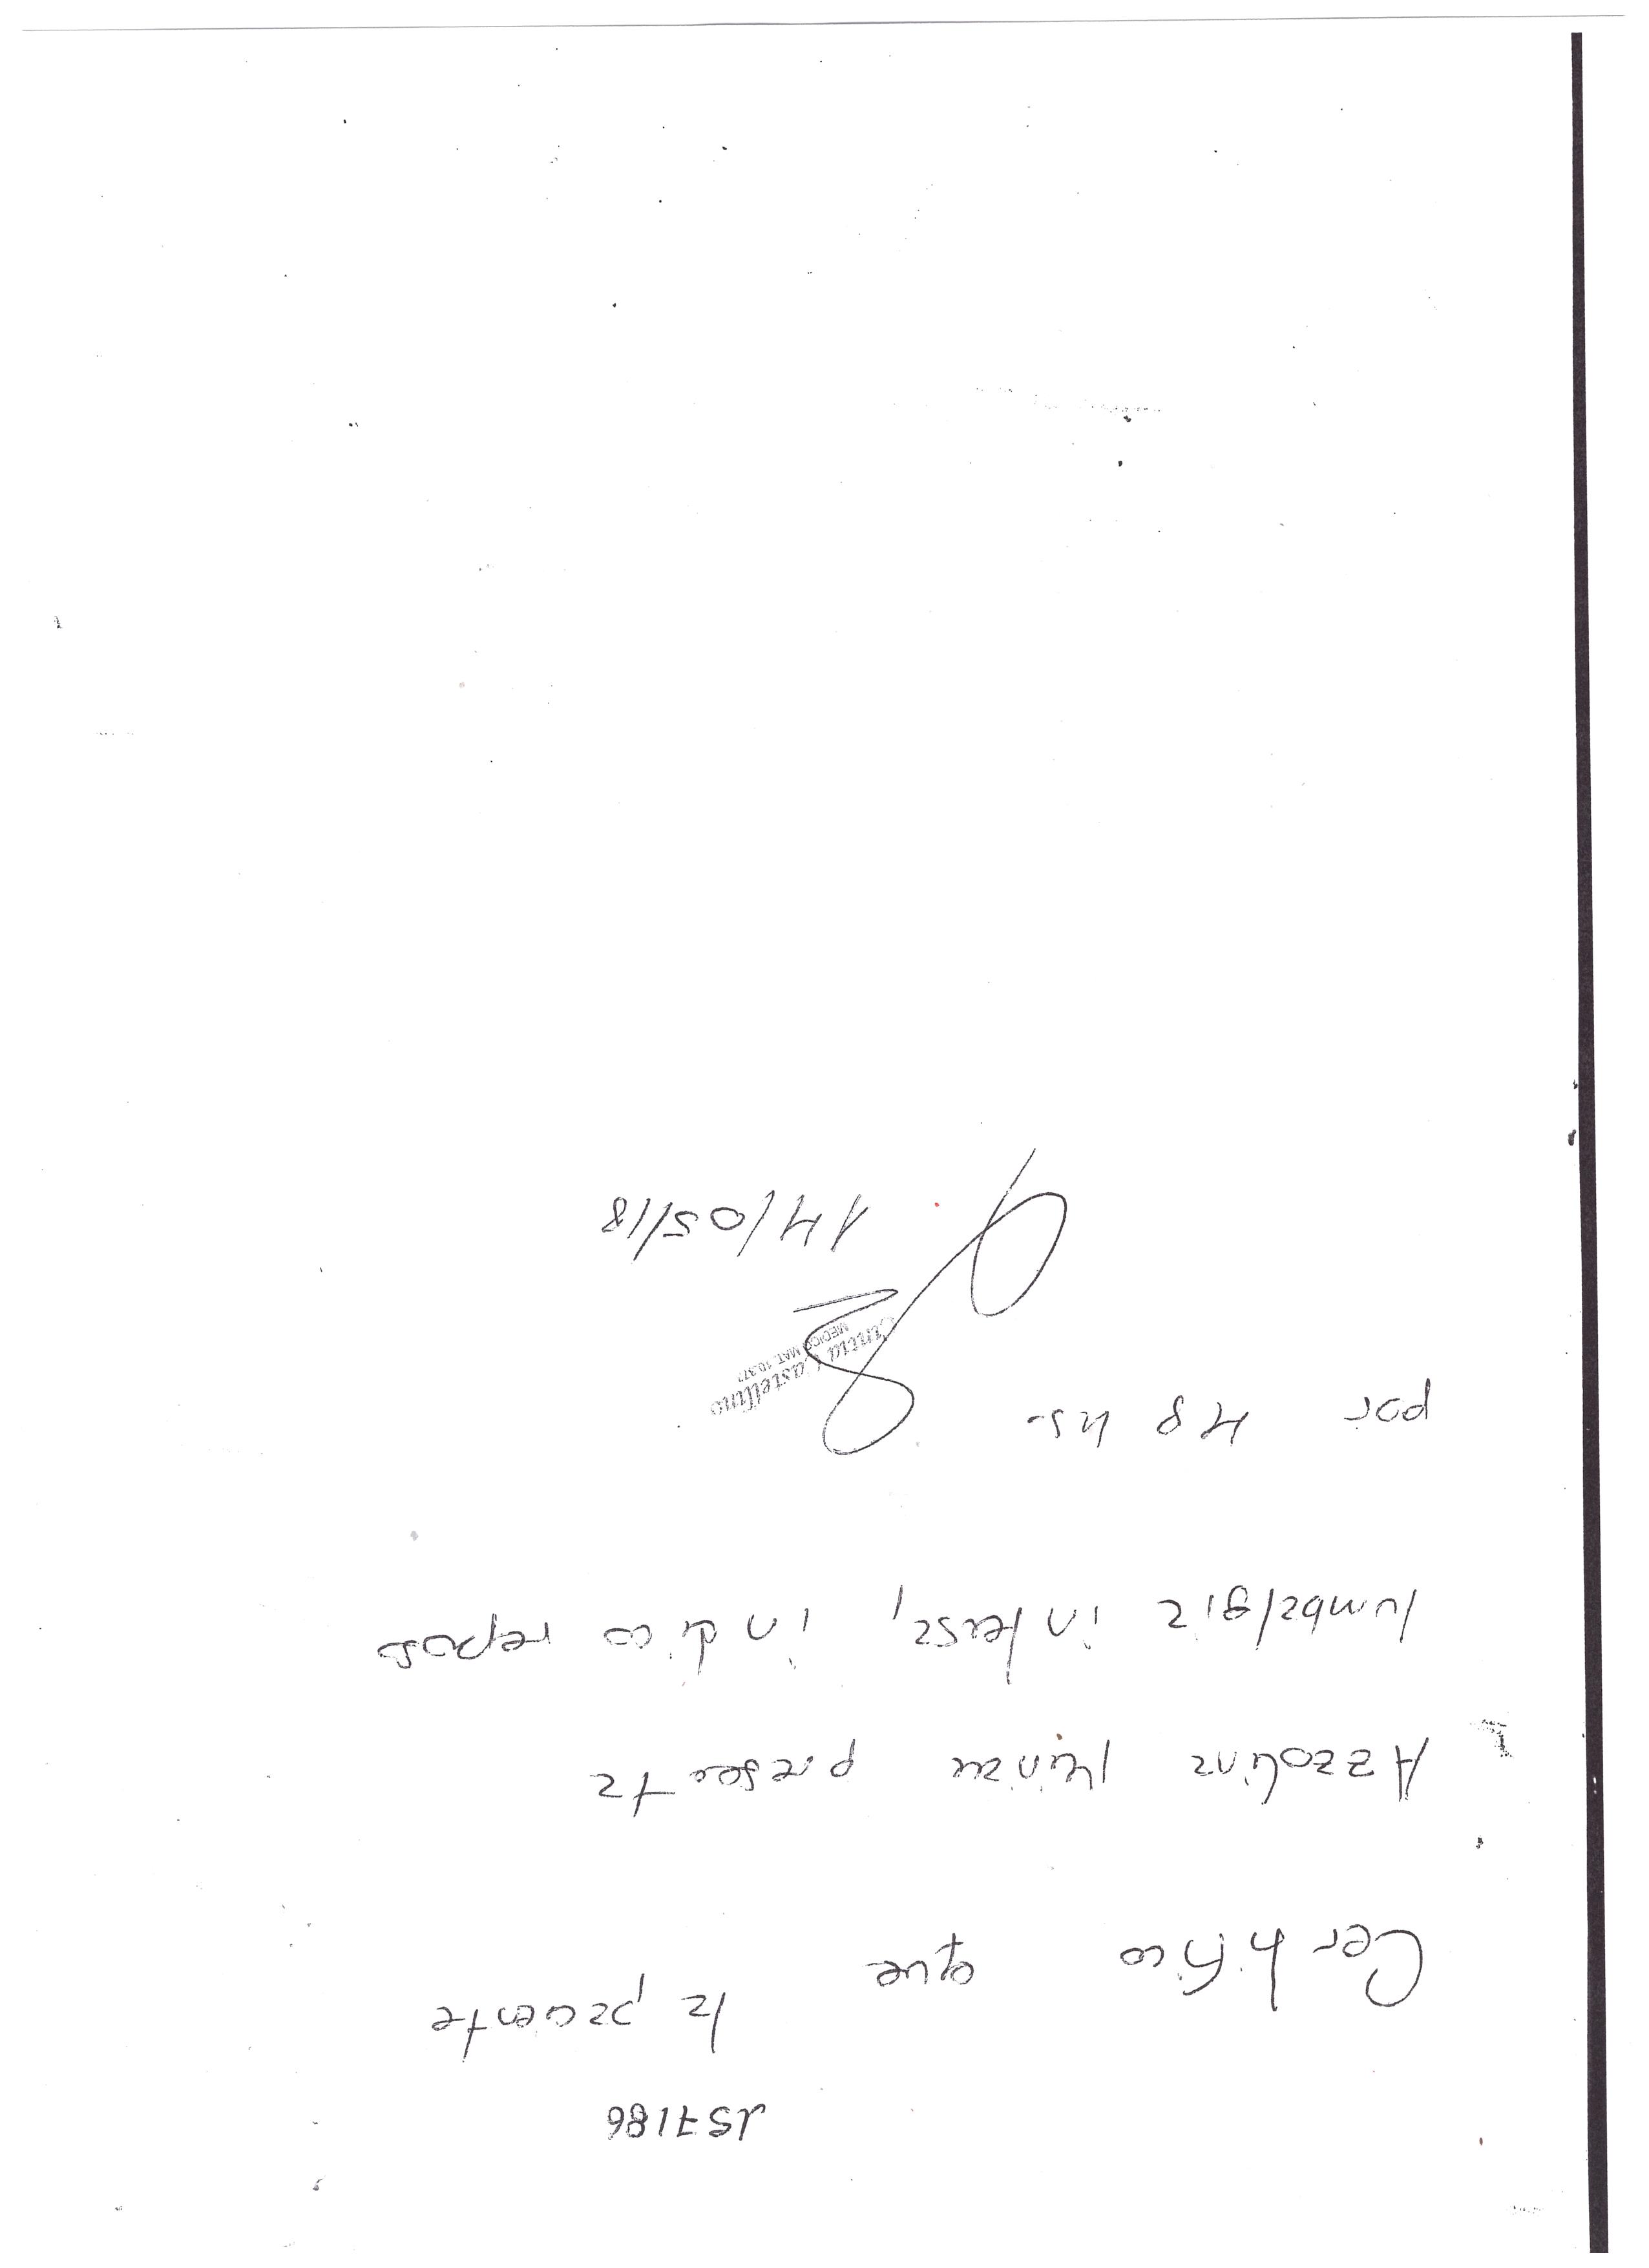 157186
Certifico que la paciente
Azzolina presenta
lumbalgia intensa, indico reposo
por 48 hs-
Castellino
MEDICO MAT. 10.373
14/05/18